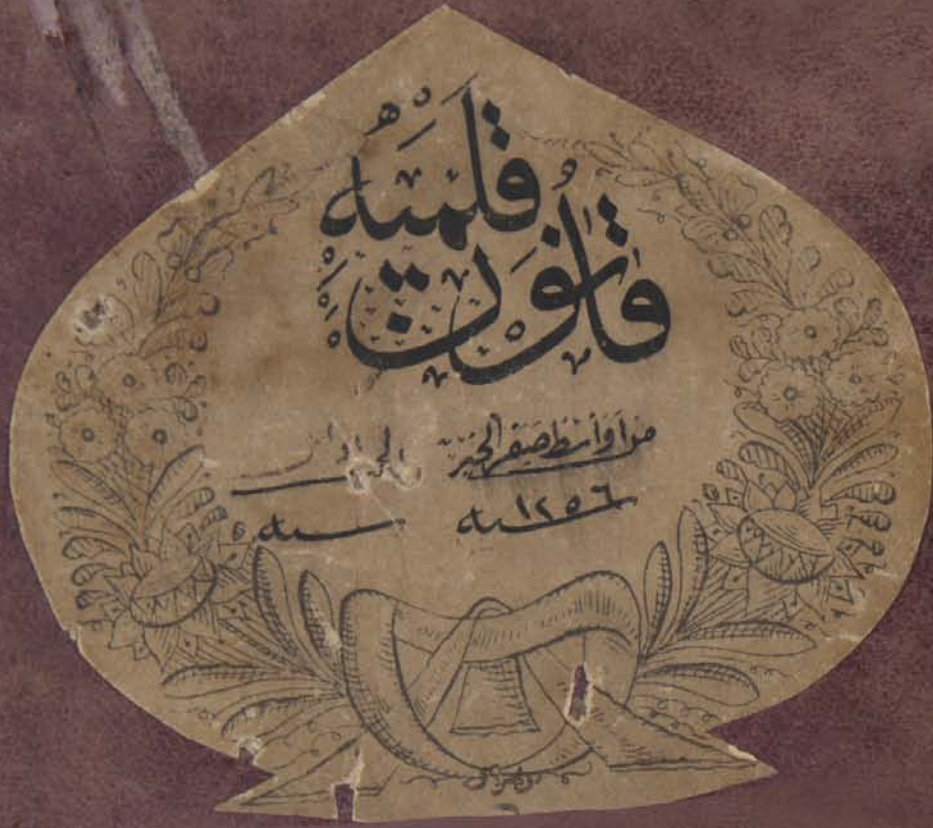 قانون قلميه
من أواسط صفر الخير الى
سنه ١٢٥٦ سنه